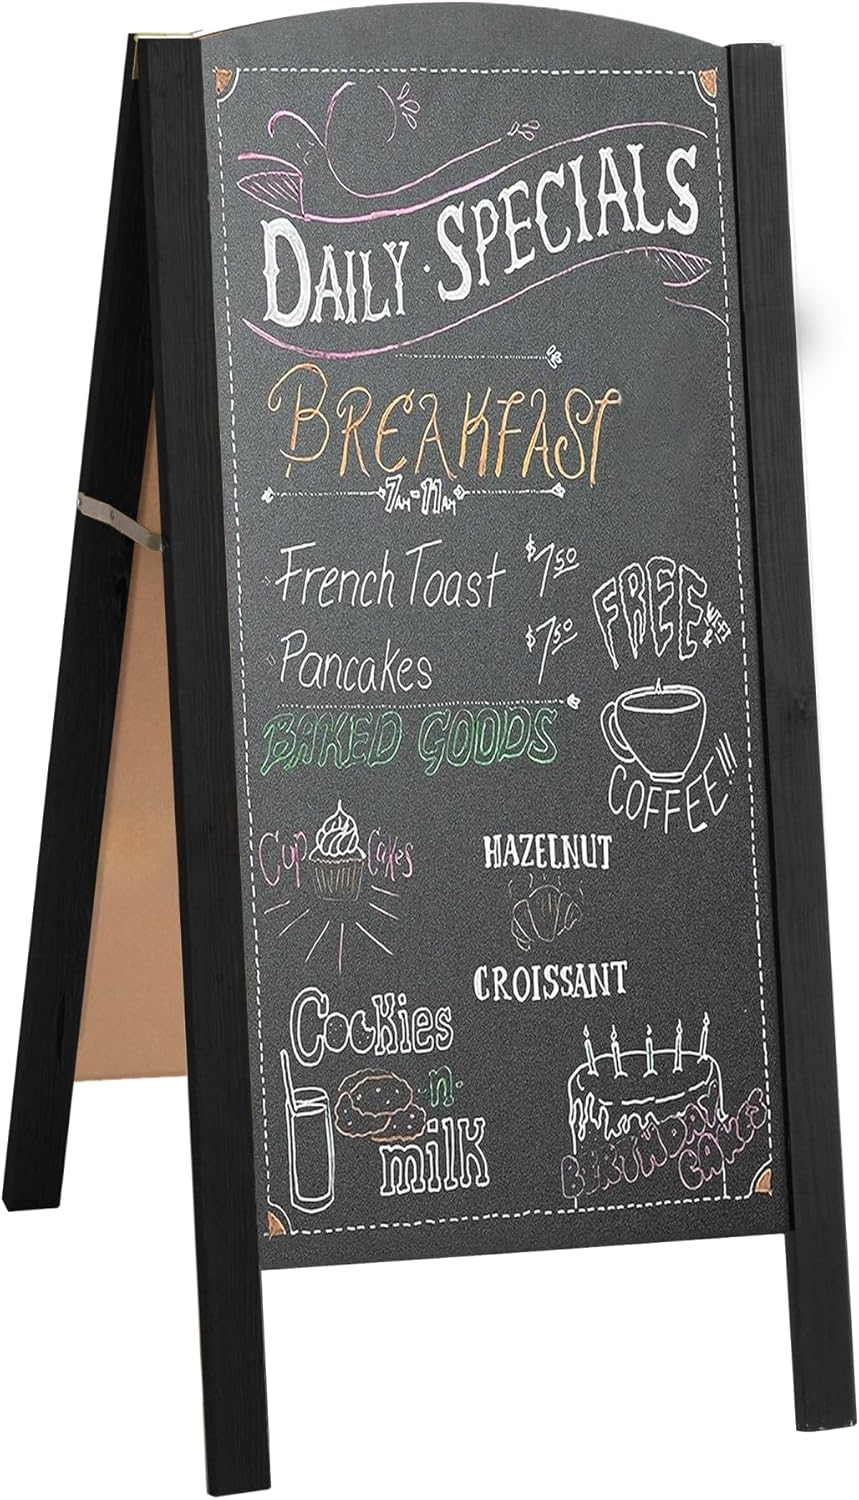 DAILY · SPECIALS
BREAKFAST
7AM-11AM
French Toast $7.50
Pancakes $7.50
FREE WI-FI &
COFFEE!!!
BAKED GOODS
Cup Cakes
HAZELNUT
CROISSANT
Cookies
·n·
milk
BIRTHDAY
CAKES